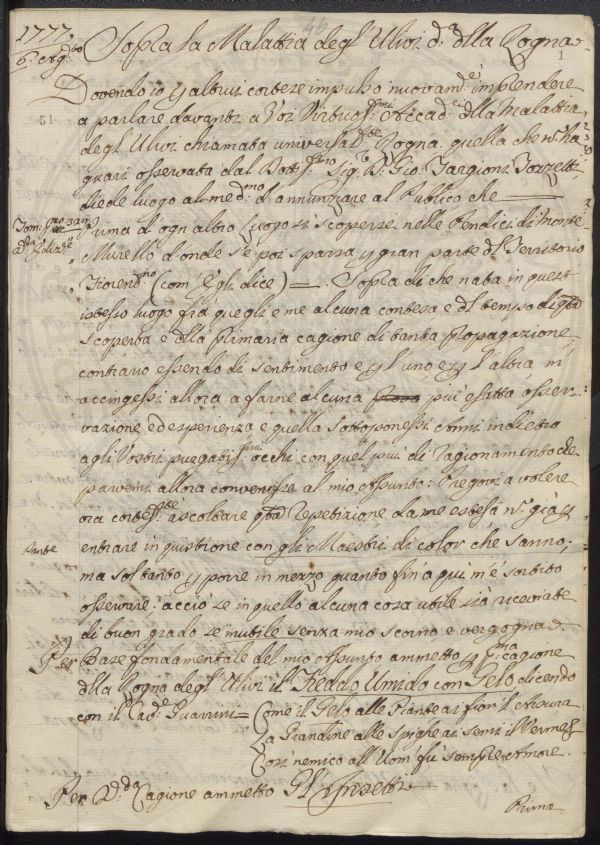 1777.
6 Ag.to
46
1
Sopra la Malattia degl' Ulivi d.a dlla Rogna
Dovendo io p altrui cortese impulso nuovam.e imprendere
a parlare davanti a Voi Virtuos.mi Accad.ci dlla Malattia
51
degl' Ulivi chiamata universal.te Rogna quella che n.
guari osservata dal Dott.mo Sig.r D.r Gio. Targioni Tozzetti
diede luogo al med.mo d'annunziare al Publico che
Tom. p.mo
Prima d'ogn altro luogo si scoperse nelle Pendici di Monte
" Murello d'onde s'è poi sparsa p gran parte dl Territorio
" Fioren.no (com' Egli dice). Sopra di che nata in quest
istesso luogo fra quegli e me alcuna contesa e dl tempo di q.ta
scoperta e dlla Primaria cagione di tanta Propagazione,
contrario essendo di sentimento e p l'uno e p l'altra m'
accingessi allora a farne alcuna più esatta osser-
vazione ed esperienza e quella sottoponessi com'è in dietro
agli Vostri purgatis.mi occhi con quel più di ragionamento che
parvemi allora convenirsi al mio Assunto: Pregovi a volere
ora cortes.te ascoltare q.ta Repetizione da me estesa n. già p
Dante
entrare in quistione con gli Maestri di color che sanno;
ma soltanto p porre in mezzo quanto fin'a qui m'è sortito
osservare: acciò se in quello alcuna cosa utile sia riceviate
di buon grado se inutile senza mio scorno e vergogna.
Per Base fondamentale del mio Assunto ammetto p p.ma cagione
dlla Rogna degl' Ulivi il Freddo Umido con Gelo dicendo
con il Cav.e Guarrini = Come il Gelo alle Piante ai fior l'Arsura
La Grandine alle Spighe ai semi il Verme
Così nemico all' Uom' fu sempre Amore.
Per 2.da Cagione ammetto Gl' Insetti
Prima